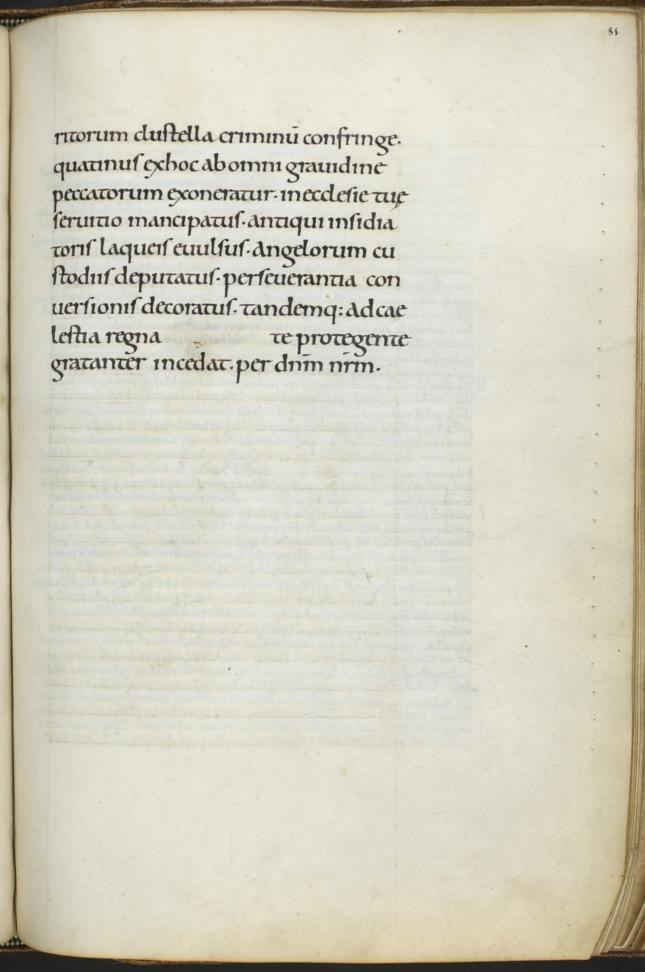 81
ritorum clustella criminū confringe.
quatinus exhoc ab omni grauidine
peccatorum exoneratur· in ecclesie tuę
seruitio mancipatus· antiqui insidia
toris laqueis euulsus· Angelorum cu
stodiis deputatus· perseuerantia con
uersionis decoratus· tandemq: Ad cae
lestia regna te protegente
gratanter incedat· per dnm̄ nrm̄.